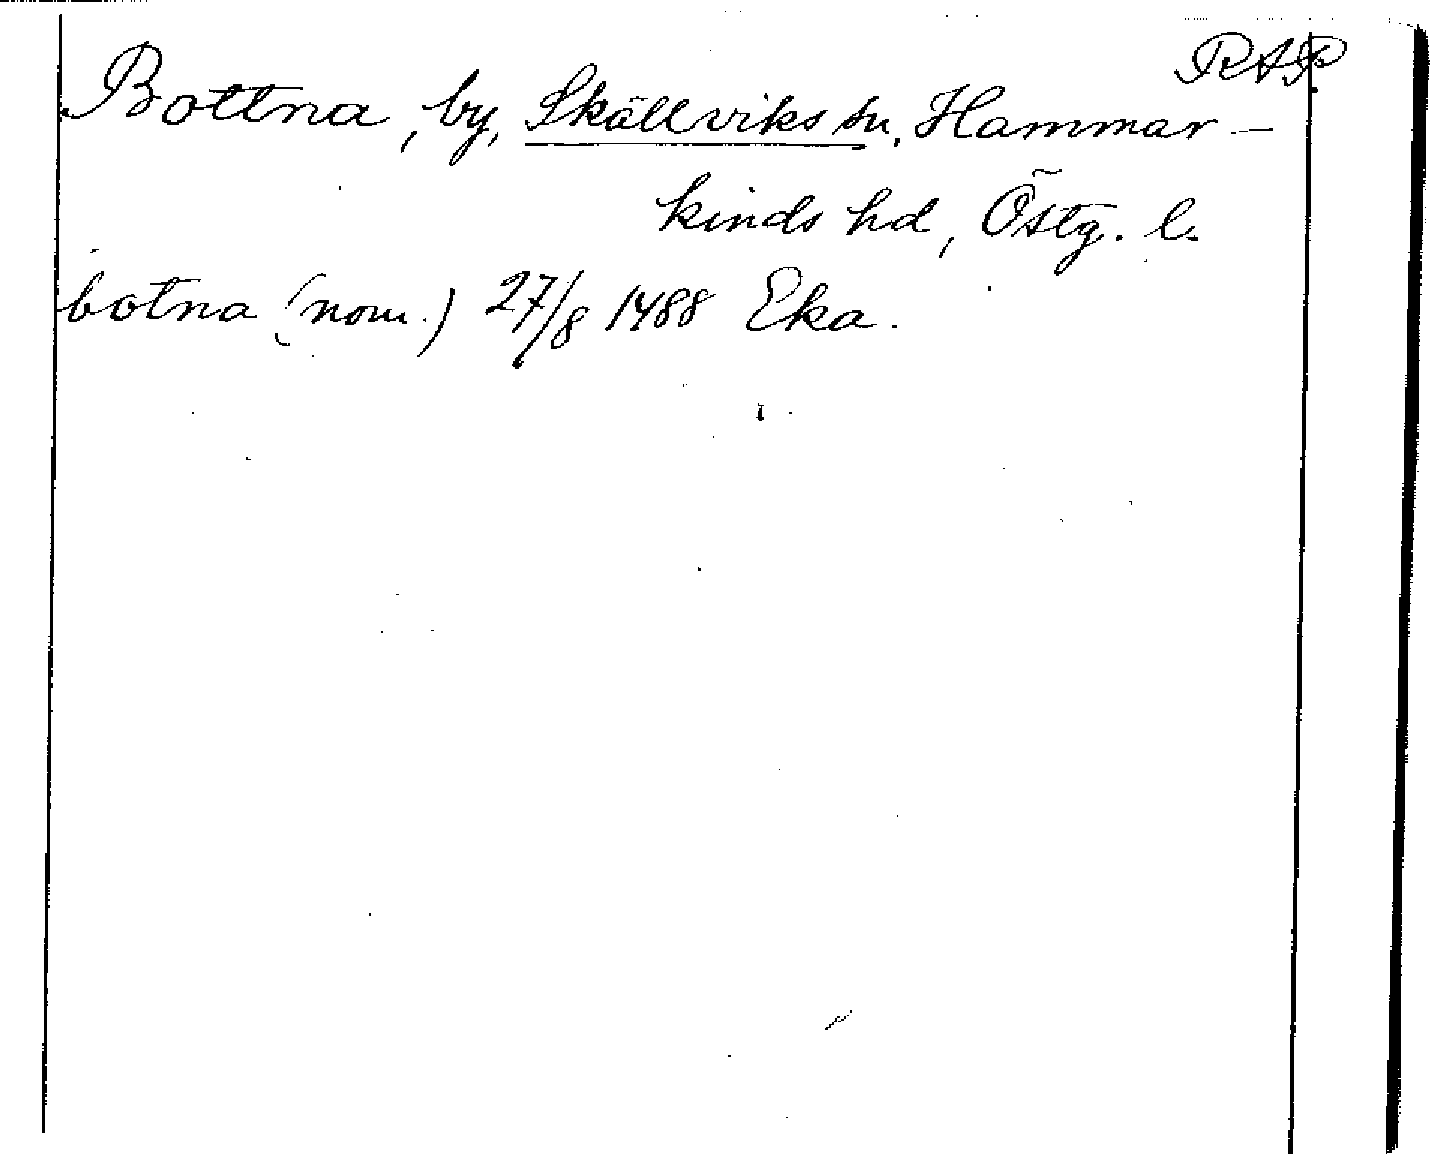 RAP.
Bottna, by, Skällviks sn, Hammar-
kinds hd, Östg. l.
botna (nom.) 27/8 1488 Eka.